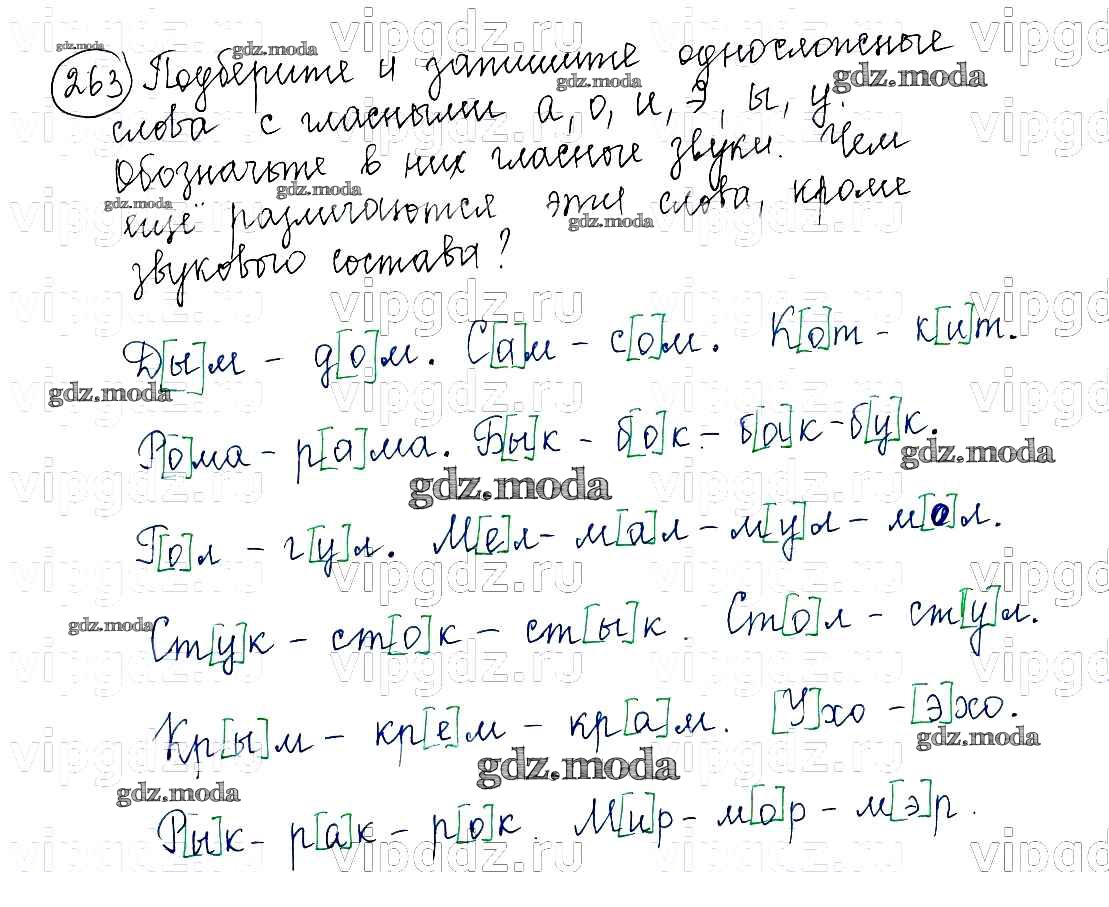 263) Подберите и запишите односложные
слова с гласными а, о, и, э, ы, у.
Обозначьте в них гласные звуки. Чем
ещё различаются эти слова, кроме
звукового состава?
Д[ы]м - д[о]м. С[а]м - с[о]м. К[о]т - к[и]т.
Р[о]ма - р[а]ма. Б[ы]к - б[о]к - б[а]к - б[у]к.
Г[о]л - г[у]л. М[е]л - м[а]л - м[у]л - м[о]л.
Ст[у]к - ст[о]к - ст[ы]к. Ст[о]л - ст[у]л.
Кр[ы]м - кр[е]м - кр[а]м. [У]хо - [э]хо.
Р[ы]к - р[а]к - р[о]к. М[и]р - м[о]р - м[э]р.
vipgdz.ru
gdz.moda